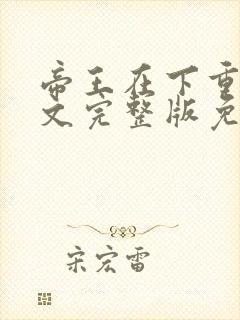 帝王在下重
文完整版免
宋宏雷